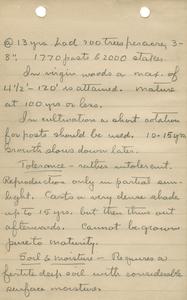 @ 13 yrs. had 700 trees per acre, 3-
8". 1770 posts & 2000 stakes.
In virgin woods a max. of
4½'-120' is attained. mature
at 100 yrs or less.
In cultivation a short rotation
for posts should be used. 10-15 yrs.
Growth slows down later.
Tolerance - rather intolerant.
Reproduction only in partial sun-
light. Casts a very dense shade
up to 15 yrs. but then thins out
afterwards. Cannot be grown
pure to maturity.
Soil & moisture - Requires a
fertile deep soil with considerable
surface moisture.